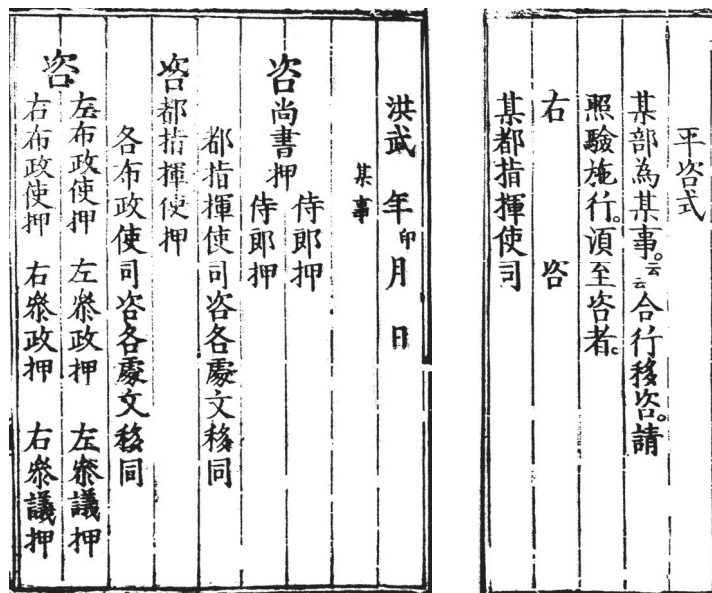 平咨式
某部為某事。云云合行移咨。請
照驗施行。湏至咨者。
右　咨
某都指揮使司
洪武　年印月　日
某事
咨尚書押　侍郎押
侍郎押
都指揮使司咨各處文移同
咨都指揮使押
各布政使司咨各處文移同
咨　左布政使押　左叅政押　左叅議押
右布政使押　右叅政押　右叅議押